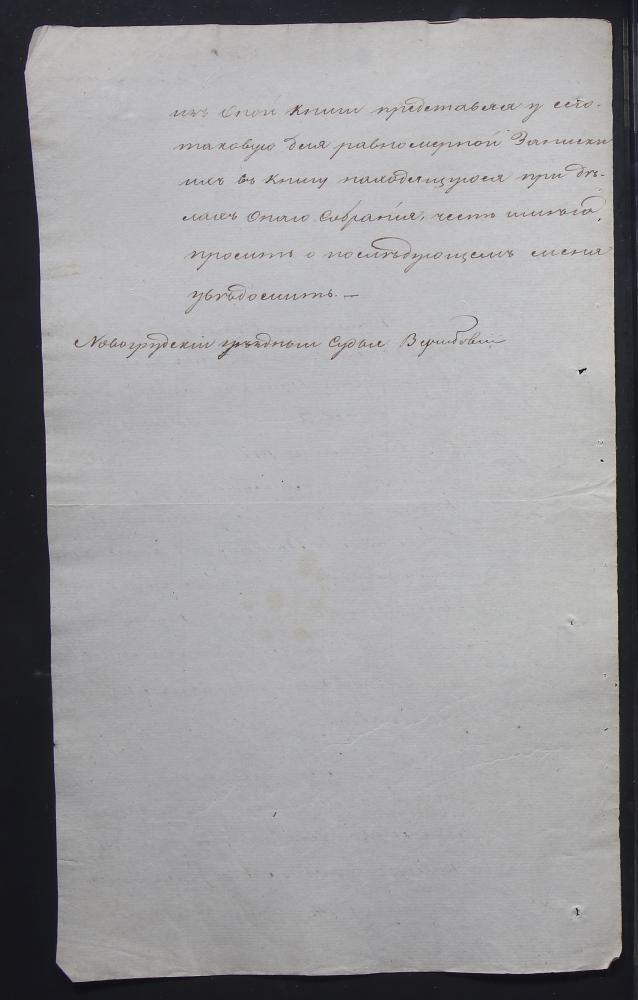 изъ оной книги представляя у сего.
таковую для равномерной Записки
ихъ въ книгу находящуюся при дѣ-
лахъ Онаго Собрания, честь имѣю
просить о послѣдующемъ меня
увѣдомить.—
Новогрудский уѣздный Судья